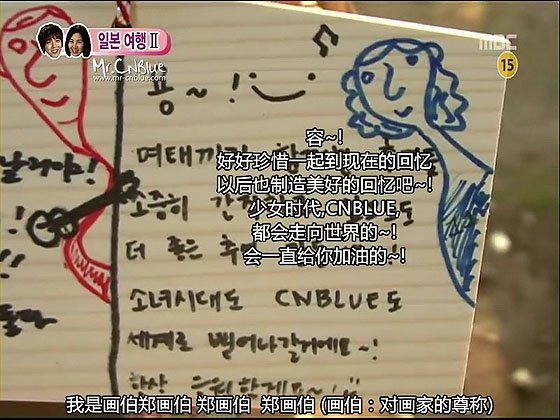 일본 여행 II
Mr.CNBlue
www.mr-cnblue.com
MBC
15
용~!
여태까지
소중히 간
더 좋은 추
소녀시대도 CNBLUE도
세계로 뻗어나갈거에요~!
항상
날라야!
!!
容~!
好好珍惜一起到现在的回忆
以后也制造美好的回忆吧~!
少女时代,CNBLUE,
都会走向世界的~!
会一直给你加油的~!
我是画伯郑画伯 郑画伯 郑画伯 (画伯：对画家的尊称)